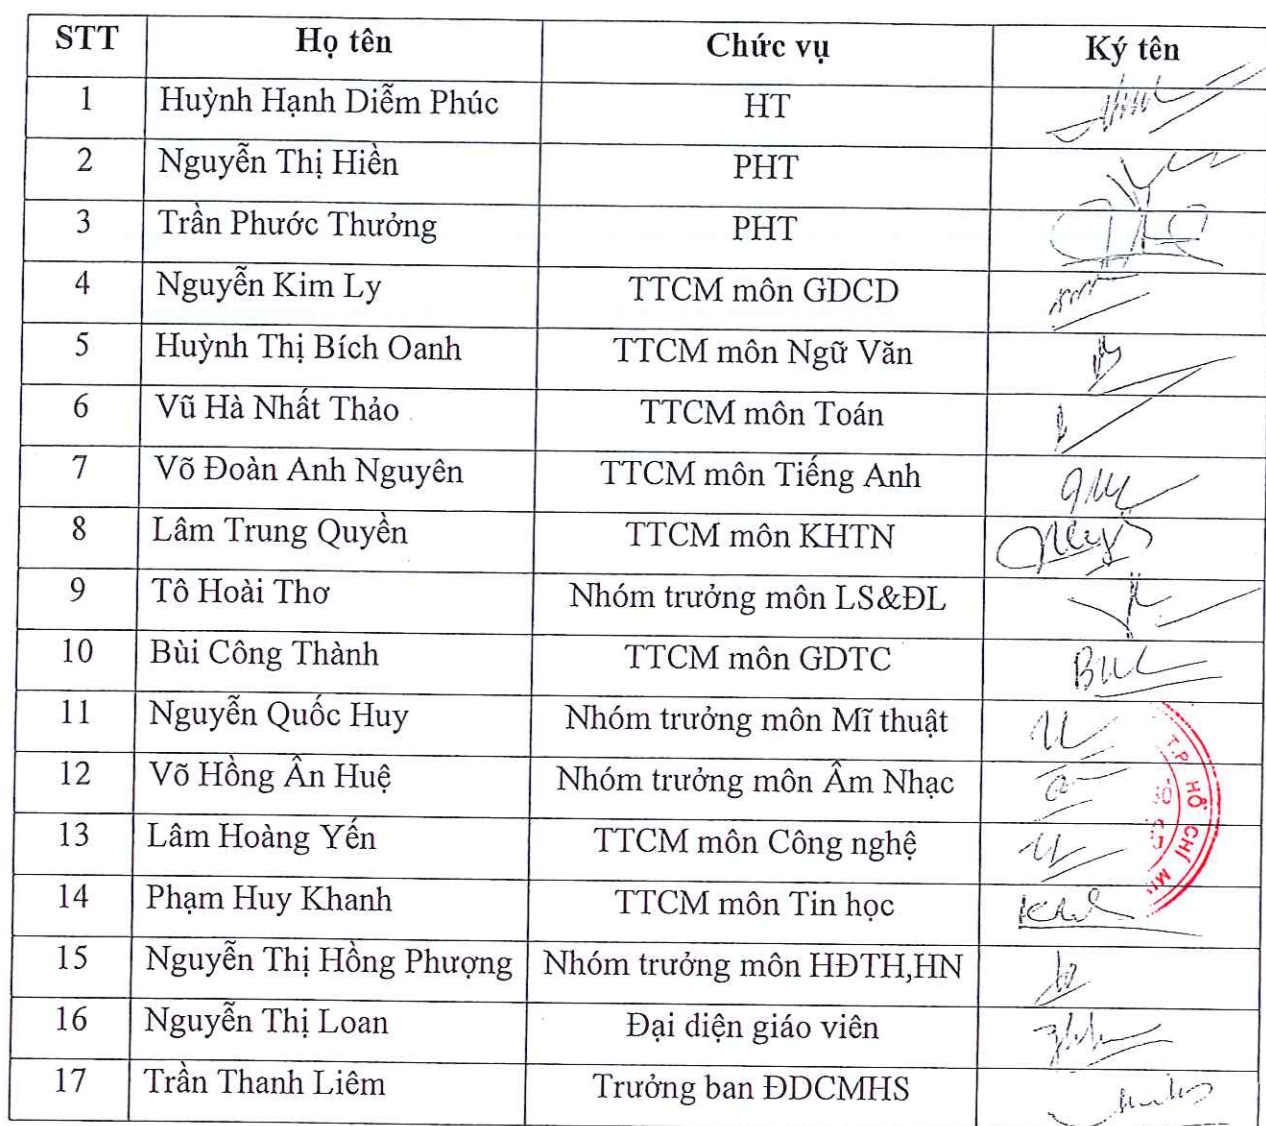 STT Họ tên Chức vụ Ký tên
1 Huỳnh Hạnh Diễm Phúc HT
2 Nguyễn Thị Hiền PHT
3 Trần Phước Thưởng PHT
4 Nguyễn Kim Ly TTCM môn GDCD
5 Huỳnh Thị Bích Oanh TTCM môn Ngữ Văn
6 Vũ Hà Nhất Thảo TTCM môn Toán
7 Võ Đoàn Anh Nguyên TTCM môn Tiếng Anh
8 Lâm Trung Quyền TTCM môn KHTN
9 Tô Hoài Thơ Nhóm trưởng môn LS&ĐL
10 Bùi Công Thành TTCM môn GDTC
11 Nguyễn Quốc Huy Nhóm trưởng môn Mĩ thuật
12 Võ Hồng Ân Huệ Nhóm trưởng môn Âm Nhạc
13 Lâm Hoàng Yến TTCM môn Công nghệ
14 Phạm Huy Khanh TTCM môn Tin học
15 Nguyễn Thị Hồng Phượng Nhóm trưởng môn HĐTH,HN
16 Nguyễn Thị Loan Đại diện giáo viên
17 Trần Thanh Liêm Trưởng ban ĐDCMHS
T.P HỒ CHÍ